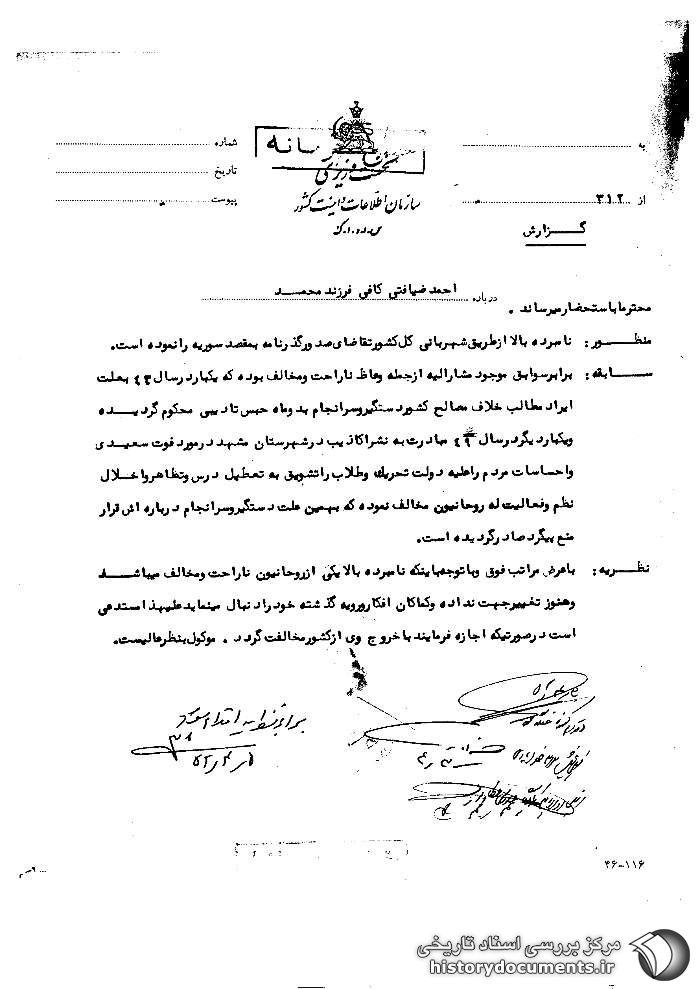 به
شماره
محرمانه
نخست وزیری
تاریخ
سازمان اطلاعات و امنیت کشور
از ۳۱۲
پیوست
س.ا.و.ا.ک
گزارش
درباره احمد ضیافتی کافی فرزند محمد
محترما باستحضار میرساند .
منظور: نامبرده بالا از طریق شهربانی کل کشور تقاضای صدور گذرنامه بمقصد سوریه را نموده است.
سابقه: برابر سوابق موجود مشارالیه از جمله وعاظ ناراحت و مخالف بوده که یکبار در سال ۴۳ بعلت
ایراد مطالب خلاف مصالح کشور دستگیر و سرانجام بدو ماه حبس تادیبی محکوم گردیده
و یکبار دیگر در سال ۴۹ مبادرت به نشر اکاذیب در شهرستان مشهد در مورد فوت سعیدی
و احساسات مردم را علیه دولت تحریک و طلاب را تشویق به تعطیل درس و تظاهر و اخلال
نظم و فعالیت له روحانیون مخالف نموده که بهمین علت دستگیر و سرانجام درباره اش قرار
منع پیگرد صادر گردیده است.
نظریه: باعرض مراتب فوق و باتوجه باینکه نامبرده بالا یکی از روحانیون ناراحت و مخالف میباشد
و هنوز تغییر جهت نداده و کماکان افکار و رویه گذشته خود را دنبال مینماید علیهذا مستدعی
است در صورتیکه اجازه فرمایند با خروج وی از کشور مخالفت گردد . موکول بنظر عالیست.
۴۶-۱۱۶
مرکز بررسی اسناد تاریخی
historydocuments.ir